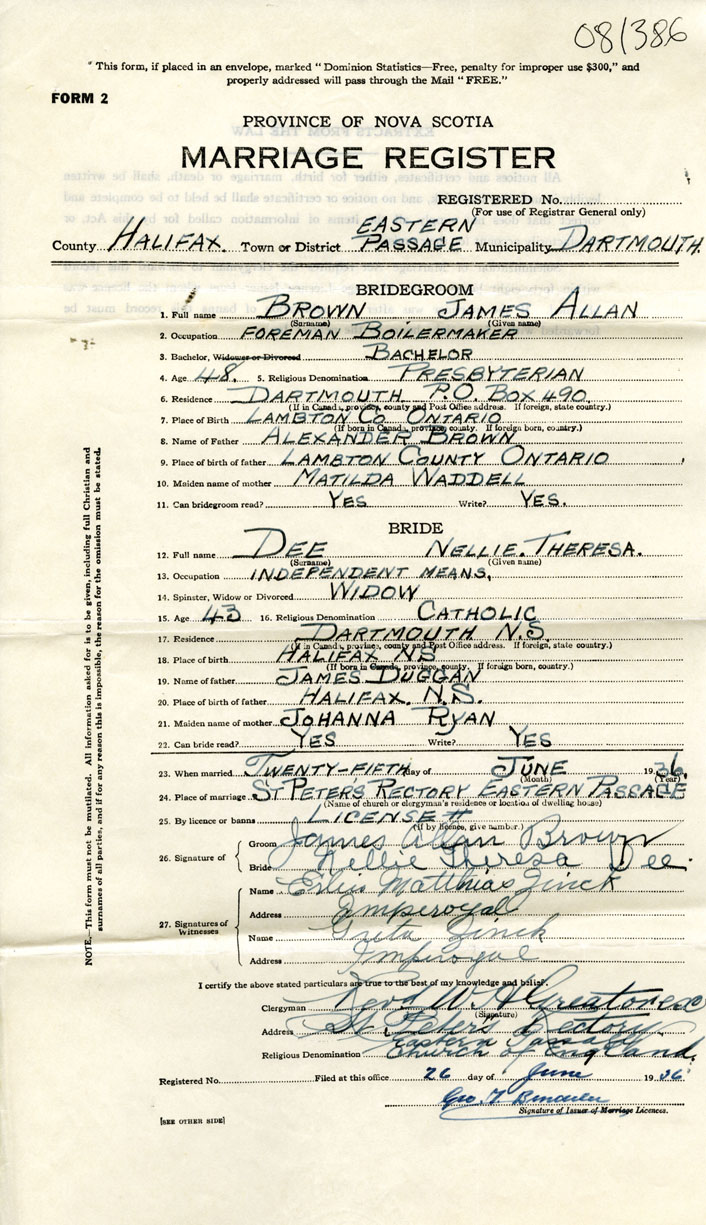 081386
" This form, if placed in an envelope, marked " Dominion Statistics—Free, penalty for improper use $300," and
properly addressed will pass through the Mail " FREE."
FORM 2
PROVINCE OF NOVA SCOTIA
MARRIAGE REGISTER
REGISTERED No.
(For use of Registrar General only)
County HALIFAX. Town or District EASTERN PASSAGE Municipality DARTMOUTH
BRIDEGROOM
1. Full name BROWN JAMES ALLAN
(Surname) (Given name)
2. Occupation FOREMAN BOILERMAKER
3. Bachelor, Widower or Divorced BACHELOR
4. Age 48. 5. Religious Denomination PRESBYTERIAN
6. Residence DARTMOUTH P.O. BOX 490.
(If in Canada, province, county and Post Office address. If foreign, state country.)
7. Place of Birth LAMBTON CO. ONTARIO
(If born in Canada, province, county. If foreign born, country.)
8. Name of Father ALEXANDER BROWN
9. Place of birth of father LAMBTON COUNTY ONTARIO
10. Maiden name of mother MATILDA WADDELL
11. Can bridegroom read? YES Write? YES.
BRIDE
12. Full name DEE NELLIE. THERESA.
(Surname) (Given name)
13. Occupation INDEPENDENT MEANS,
14. Spinster, Widow or Divorced WIDOW
15. Age 43 16. Religious Denomination CATHOLIC
17. Residence DARTMOUTH N.S.
(If in Canada, province, county and Post Office address. If foreign, state country.)
18. Place of birth HALIFAX NS
(If born in Canada, province, county. If foreign born, country.)
19. Name of father JAMES DUGGAN
20. Place of birth of father HALIFAX. N.S.
21. Maiden name of mother JOHANNA RYAN
22. Can bride read? YES Write? YES
23. When married TWENTY-FIFTH day of JUNE 1936
(Month) (Year)
24. Place of marriage ST PETER'S RECTORY EASTERN PASSAGE
(Name of church or clergyman's residence or location of dwelling house)
25. By licence or banns LICENSE #
(If by licence, give number.)
26. Signature of
Groom James Allan Brown
Bride Nellie Theresa Dee.
27. Signatures of Witnesses
Name Matthias Zinck
Address Imperoyal
Name Greta Zinck
Address Imperoyal
I certify the above stated particulars are true to the best of my knowledge and belief.
Clergyman Revd W. A Greatorex
(Signature)
Address St. Peter's Rectory
Eastern Passage
Religious Denomination Church of England.
Registered No. Filed at this office 26 day of June 1936
Geo. T.
Signature of Issuer of Marriage Licences.
[SEE OTHER SIDE]
NOTE.—This form must not be mutilated. All information asked for is to be given, including full Christian and
surnames of all parties, and if for any reason this is impossible, the reason for the omission must be stated.